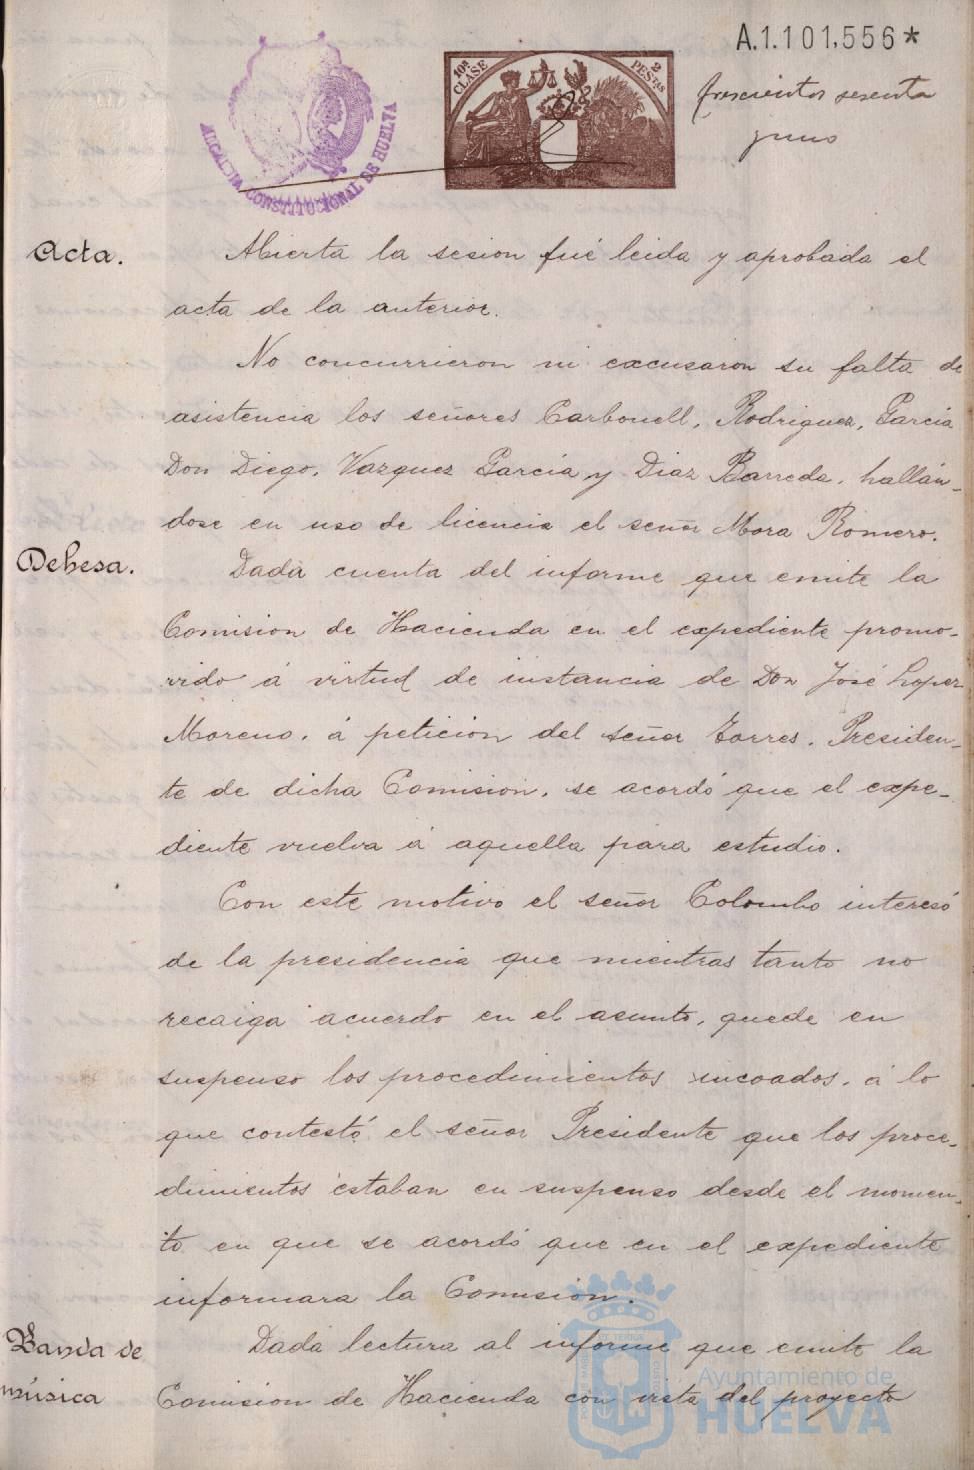 A.1.101,556*
10ª CLASE
2 PESTAS
trescientos sesenta
y uno
ALCALDIA CONSTITUCIONAL DE HUELVA
Acta.
Abierta la sesion fué leida y aprobada el
acta de la anterior.
No concurrieron ni excusaron su falta de
asistencia los señores Carbonell, Rodriguez, Garcia
Don Diego, Vazquez Garcia y Diaz Barreda, hallán-
dose en uso de licencia el señor Mora Romero.
Dehesa.
Dada cuenta del informe que emite la
Comision de Hacienda en el expediente promo-
vido á virtud de instancia de Don José Lopez
Moreno, á peticion del señor Torres, Presiden-
te de dicha Comision, se acordó que el expe-
diente vuelva á aquella para estudio.
Con este motivo el señor Colombo interesó
de la presidencia que mientras tanto no
recaiga acuerdo en el asunto, quede en
suspenso los procedimientos incoados, á lo
que contestó el señor Presidente que los proce-
dimientos estaban en suspenso desde el momen-
to en que se acordó que en el expediente
informara la Comision.
Banda de
música
Dada lectura al informe que emite la
Comision de Hacienda con vista del proyecto
Ayuntamiento de
HUELVA